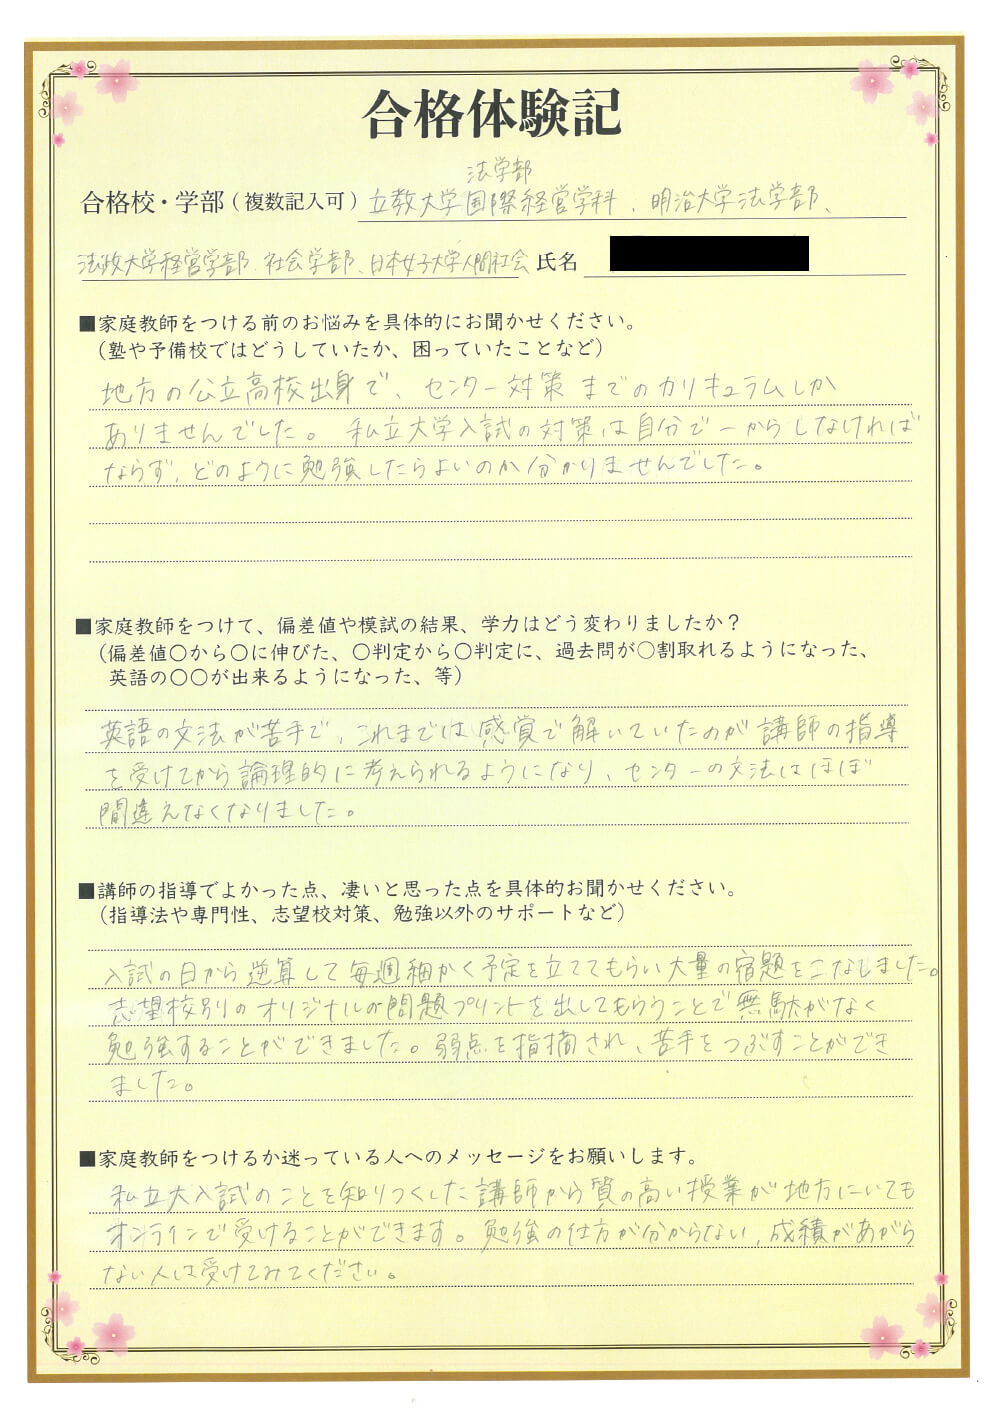 合格体験記
法学部
合格校・学部（複数記入可）立教大学国際経営学科、明治大学法学部、
法政大学経営学部、社会学部、日本女子大学人間社会 氏名
■家庭教師をつける前のお悩みを具体的にお聞かせください。
（塾や予備校ではどうしていたか、困っていたことなど）
地方の公立高校出身で、センター対策までのカリキュラムしか
ありませんでした。私立大学入試の対策は自分で一からしなければ
ならず、どのように勉強したらよいのか分かりませんでした。
■家庭教師をつけて、偏差値や模試の結果、学力はどう変わりましたか？
（偏差値○から○に伸びた、○判定から○判定に、過去問が○割取れるようになった、
英語の○○が出来るようになった、等）
英語の文法が苦手で、これまでは感覚で解いていたのが講師の指導
を受けてから論理的に考えられるようになり、センターの文法はほぼ
間違えなくなりました。
■講師の指導でよかった点、凄いと思った点を具体的お聞かせください。
（指導法や専門性、志望校対策、勉強以外のサポートなど）
入試の日から逆算して毎週細かく予定を立ててもらい大量の宿題をこなしました。
志望校別のオリジナルの問題プリントを出してもらうことで無駄がなく
勉強することができました。弱点を指摘され、苦手をつぶすことができ
ました。
■家庭教師をつけるか迷っている人へのメッセージをお願いします。
私立大入試のことを知りつくした講師から質の高い授業が地方にいても
オンラインで受けることができます。勉強の仕方が分からない、成績があがら
ない人は受けてみてください。